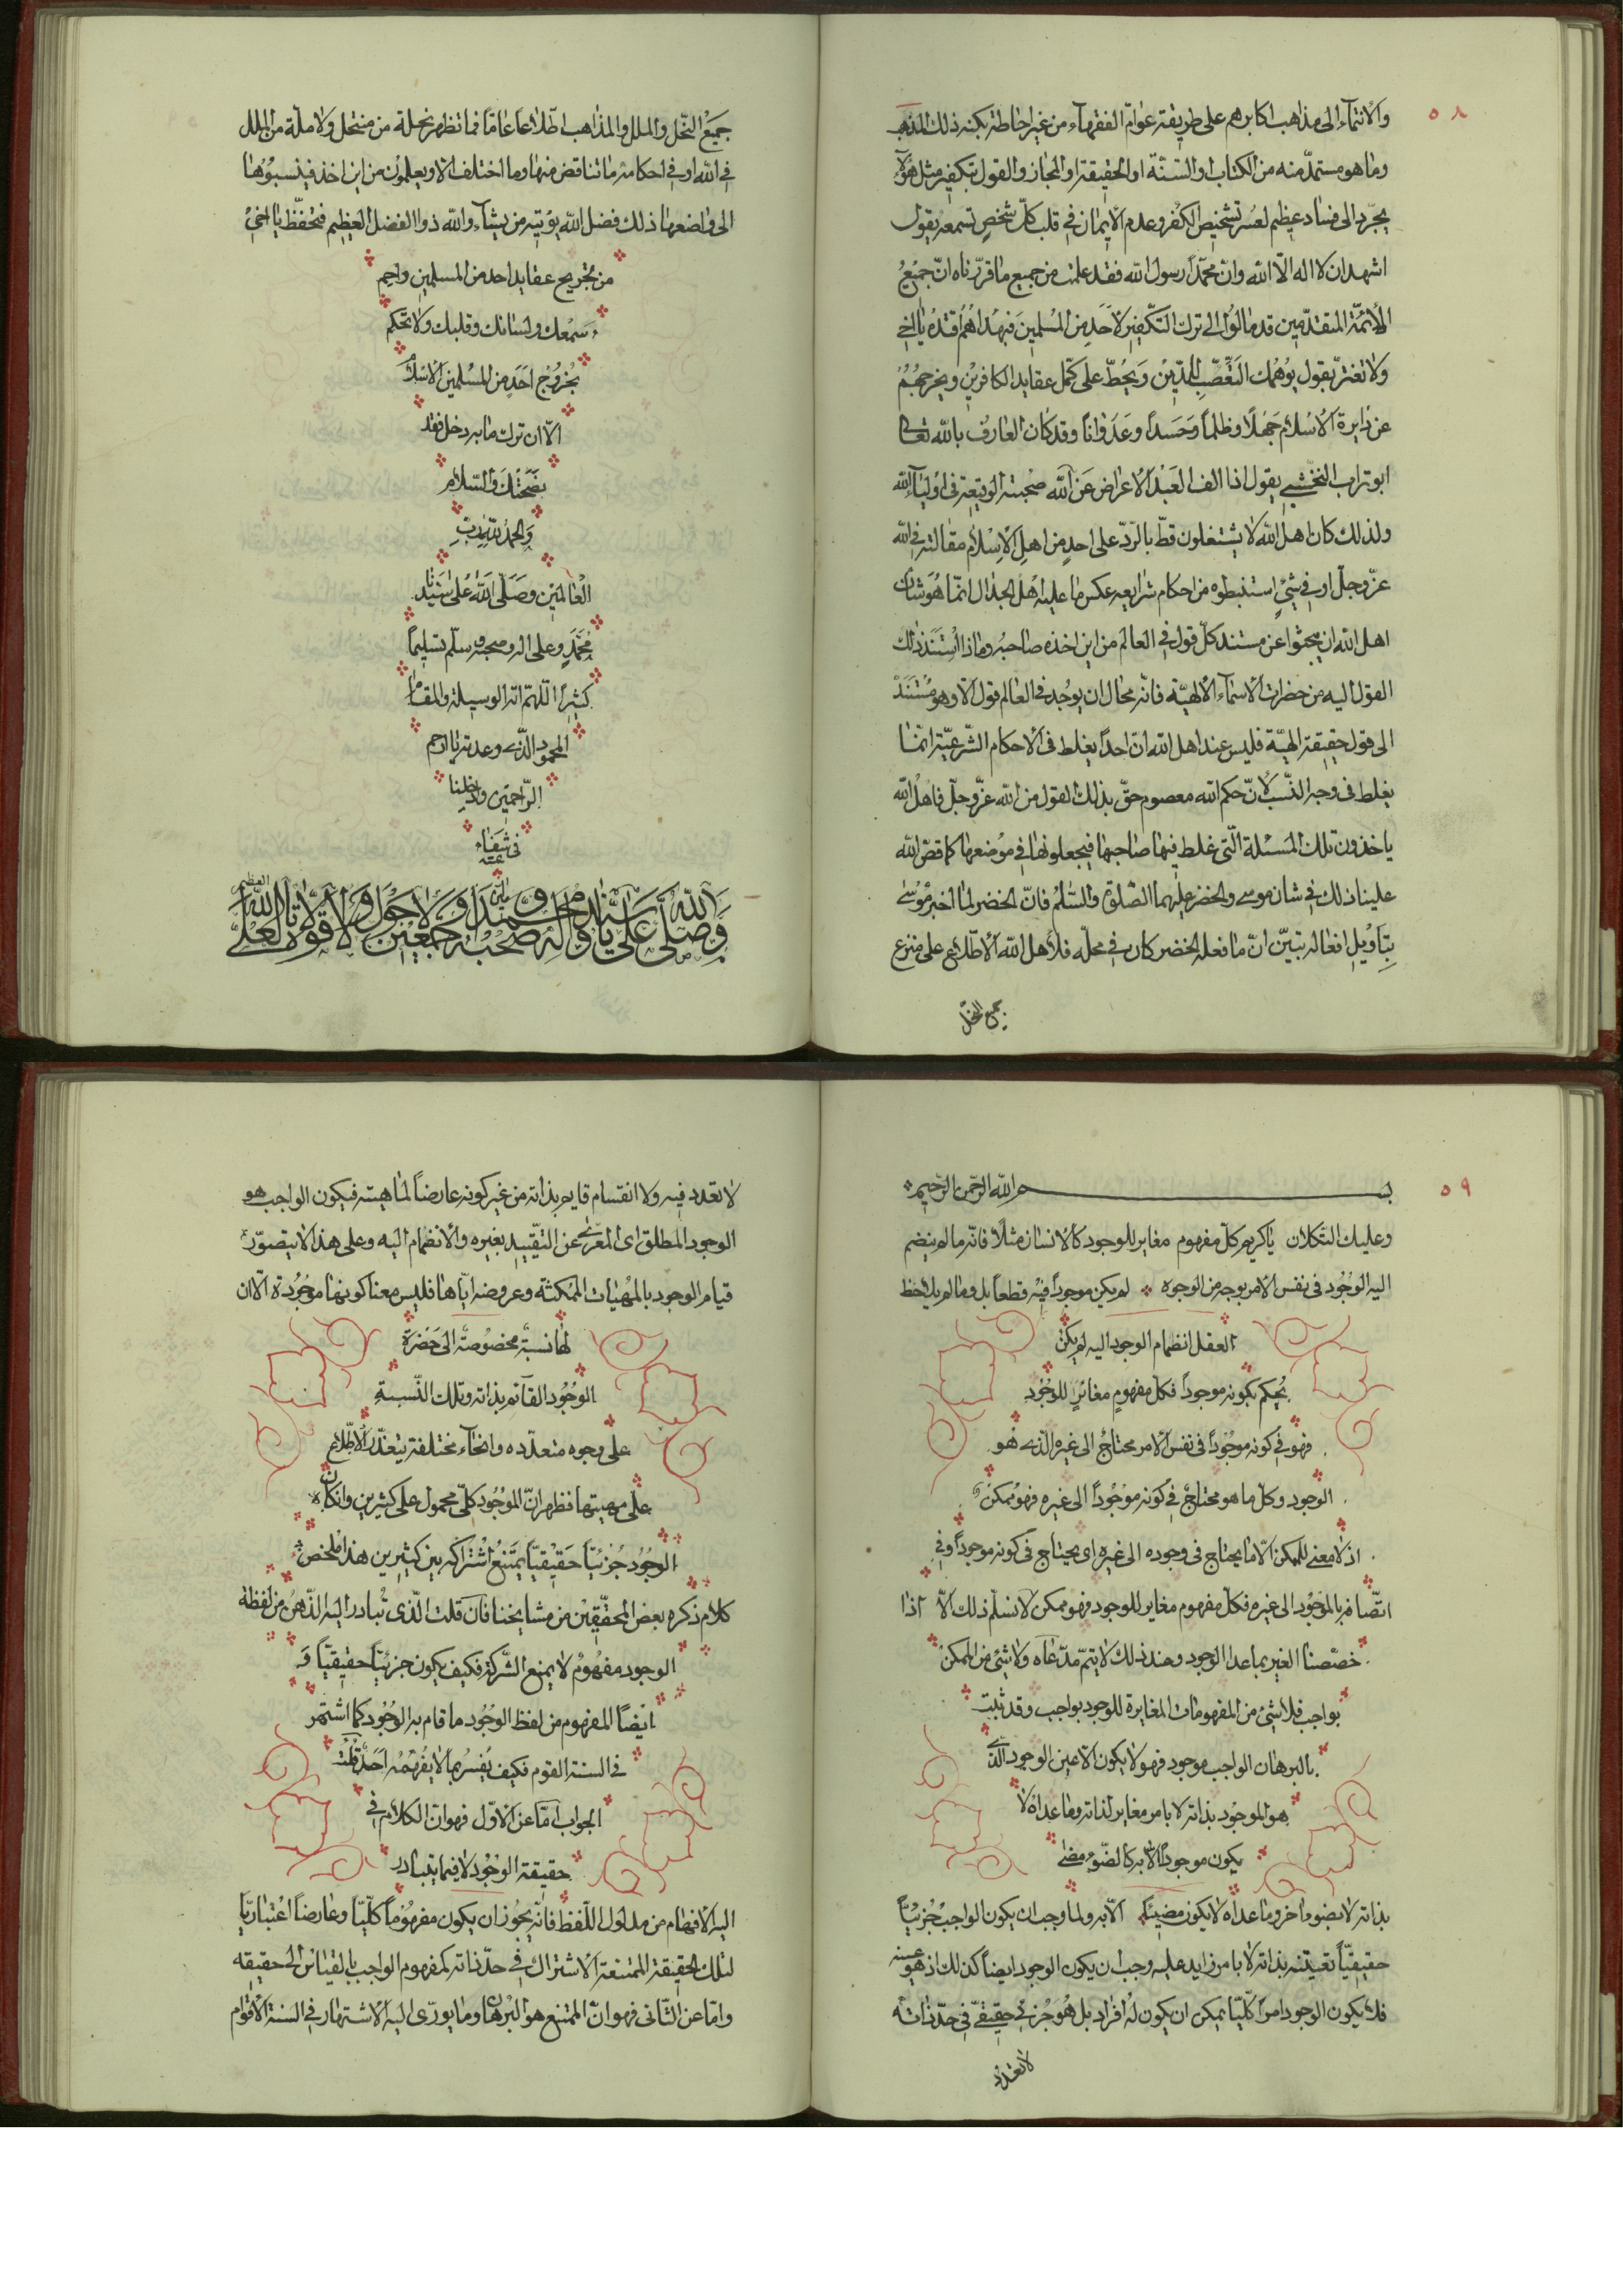 ٥٨
والانتماء الى مذاهب اكابرهم على طريقة عوام الفقهاء من غير احاطة بكنه ذلك المذهب
وما هو مستمد منه من الكتاب او السنة او الحقيقة او المجاز والقول بتكفير مثل هؤلاء
يجرّ الى فساد عظيم لعسر تشخيص الكفر وعدم الايمان في قلب كلّ شخصٍ تسمعه يقول
اشهد ان لا اله الّا الله وانّ محمّداً رسول الله فقد علمت من جميع ما قرّرناه انّ جميعُ
الأئمّة المتقدّمين قد مالوا الى ترك التكفير لأحدٍ من المسلمينَ فبهداهم اقتدهُ يا اخي
ولا تغترّ بقول يوهمك التعصّب للدّين ويحطّ على كمّل عقايد الكافرين ويخرجهُمُ
عن دايرة الاسلام جَهلاً وظلماً وحَسداً وعَدواناً وقد كان العارف بالله تعالى
ابو تراب النخشبي يقول اذا الف العَبْد الاعراض عَن الله صحبته الوقيعة في اوليآء الله
ولذلك كان اهل الله لا يشتغلون قطّ بالردّ على احدٍ من اهل الاسلام مقالته في الله
عزّ وجلّ او في شيءٍ استنبطوه من احكام شرايعه عكس ما عليه اهل الجدال انّما هو شان
اهل الله ان يبحثوا عن مستند كلّ قول في العالم من اين اخذه صاحبه وماذا استند ذلك
القول اليه من حضرات الاسماء الالهيّة فانّه محال ان يوجد في العالم قول الّا وهو مُستَندٌ
الى قول حقيقة الهيّة فليس عند اهل الله انّ احداً يغلط في الاحكام الشرعيّة انمّا
يغلط في وجه النّسب لانّ حكم الله معصوم حقّ بذلك القول من الله عزّ وجلّ فاهل الله
ياخذون تلك المسئلة الّتي غلط فيها صاحبها فيجعلونها في موضعها كما قصّ الله
علينا ذلك في شان موسى والخضر عليهما الصّلوة والسّلام فانّ الخضر لما اخبر موسى
بتاويل افعاله تبيّن انّ ما فعله الخضر كان في محلّه فلاهل الله الاطّلاع على منزع
جميع النحل
جميع النّحل والملل والمذاهب اطّلاعاً عامّاً فما تظهر نحلة من منتحل ولا ملّة من الملل
في الله او في احكامه ما تناقض منها وما اختلف الّا ويعلمون من اين اخذ فينسبوها
الى واضعها ذلك فضل الله يؤتيه من يشآء والله ذو الفضل العظيم فتحفّظ يا اخي
من تجريح عقايد احد من المسلمين واحم
سمعك ولسانك وقلبك ولا تحكم
بخروج احَدٍ من المسْلمين الاسْلام
الّا ان ترك ما به دخل فقد
نصَحْتُكَ والسّلام
والحمدُ للهِ ربّ
العالمين وصَلّى الله على سَيّدنا
محمّدٍ وعلى اله وصحبه وسلّم تسليماً
كثيراً اللّهمّ اته الوسيلة والمقام
المحمود الّذي وعدته يا ارحم
الرّاحمين وادخلنا
في شفاعته
وصلى الله على سيدنا محمد وآله وصحبه اجمعين ولا حول ولا قوة الا بالله العلي العظيم
٥٩
بسم الله الرّحمن الرّحيم
وعليك التكلان يا كريم كلّ مفهوم مغاير للوجود كالانسان مثلاً فانّه ما لم ينضم
اليه الوجُود في نفس الامر بوجه من الوجوه لم يكن موجوداً فيه قطعاً بل وما لم يلاحظ
العقل انضمام الوجود اليه لم يكن
يُحكم بكونه موجوداً فكل مفهومٍ مغايرٍ للوجُود
فهو في كونه موجُوداً في نفس الامر محتاجٌ الى غيره الّذي هو
الوجود وكلّ ما هو محتاجٌ في كونه موجُوداً الى غيره فهو ممكنٌ
اذ لا معنى للممكن الّا ما يحتاج في وجوده الى غيره اي يحتاج في كونه موجوداً وفي
اتّصافه بالموجُود الى غيره فكل مفهوم مغاير للوجود فهو ممكن لا نسلّم ذلك الّا اذا
خصّصنا الغير بما عدا الوجود وعند ذلك لا يتمّ مدّعاه ولا شئ من الممكن
بواجب فلا شئ من المفهومات المغايرة للوجود بواجب وقد ثبت
بالبرهان الواجب موجود فهو لا يكون الّا عين الوجود الّذي
هو الموجُود بذاته لا بامر مغاير لذاته وما عداه لا
يكون موجوداً الّا به كالضّوء مضئ
بذاته لا بضوء آخر وما عداه لا يكون مضيئاً الّا به ولما وجب ان يكون الواجب جُزئيّاً
حقيقيّاً تعيّنه بذاته لا بامر زايد عليه وجب ان يكون الوجود ايضاً كذلك اذ هو عينه
فلا يكون الوجود امراً كلّيّا يمكن ان يكون له افراد بل هُوَ جُزئيّ حقيقيّ في حدّ ذاته
لا تعدد
لا تعدد فيه ولا انقسام قايم بذاته من غير كونه عارضاً لماهيته فيكون الواجب هو
الوجود المطلق اي المعرّى عن التقييد بغيره والانضمام اليه وعلى هذا لا يتصوّر
قيام الوجود بالمهيات الممكنة وعروضه ايّاها فليس معنا كونها موجُودة الّا ان
لها نسبةٌ مخصُوصةٌ الى حَضرَة
الوجُود القآئم بذاته وتلك النّسبة
على وجوه متعدّده وانحآء مختلفة يتعذّر الاطّلاع
على مهيتها فظهر انّ الموجُود كلّي محمول على كثيرين وان كان
الوجُود جُزئيّاً حَقيقيّاً يمتَنعُ اشتراكه بين كثيرين هذا ملخص
كلام ذكره بعض المحقّقين من مشايخنا فان قلت الّذي تبادر اليه الذّهن من لفظة
الوجود مفهُومٌ لا يمنع الشّركة فكيف يكون جزئيّاً حقيقيّاً وَ
ايضاً المفهوم من لفظ الوجُود ما قام به الوجُود كما اشتهر
في السنة القوم فكيف يُفسرُ بما لا يفهمه احدٌ قلت
الجواب امّا عن الاوّل فهو انّ الكلام في
حقيقة الوجُود لا فيما يتبادر
اليه الافهام من مدلول اللّفظ فانّه يجوز ان يكون مفهُوماً كلّيّاً وعارضاً اعتباريّا
لتلك الحقيقة الممتنعة الاشتراك في حدّ ذاته كمفهوم الواجب بالقياس الى حقيقته
وامّا عن الثّاني فهو انّ المتّبع هو البُرهان وما يؤدّي اليه الاشتهار في السنة الاقوام